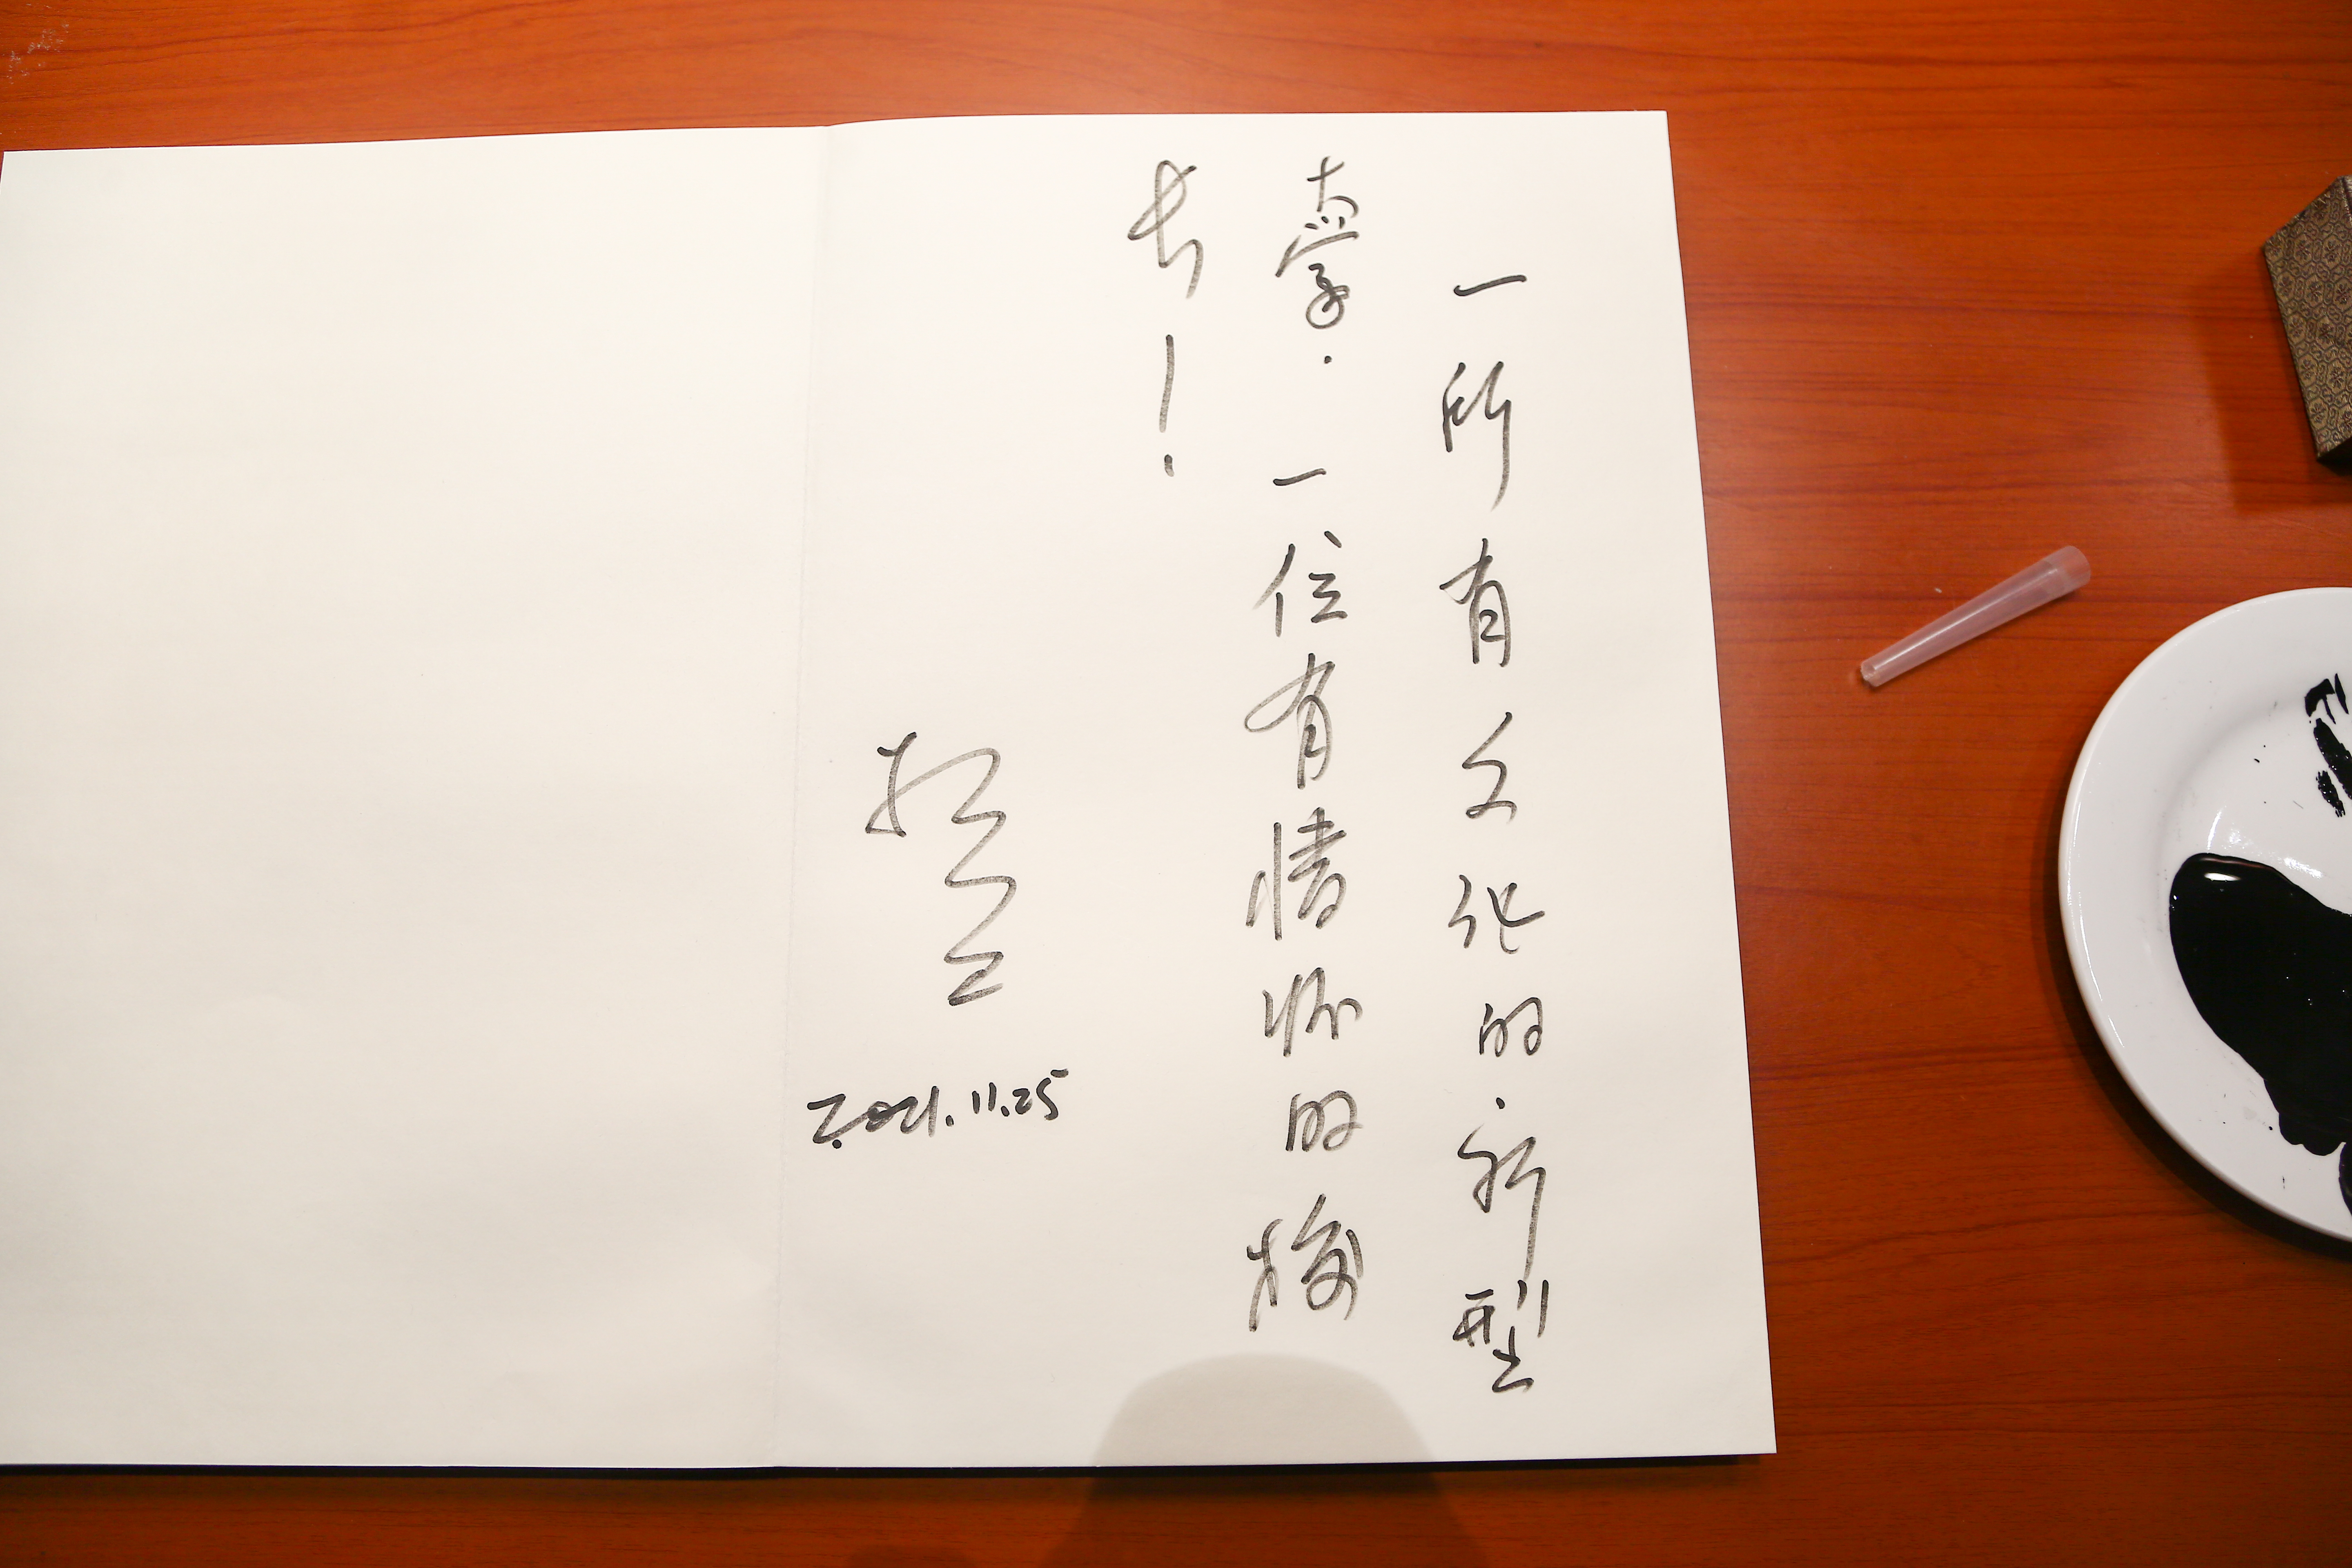 一所有文化的.新型
大学.一位有情怀的校
长!
2021.11.25